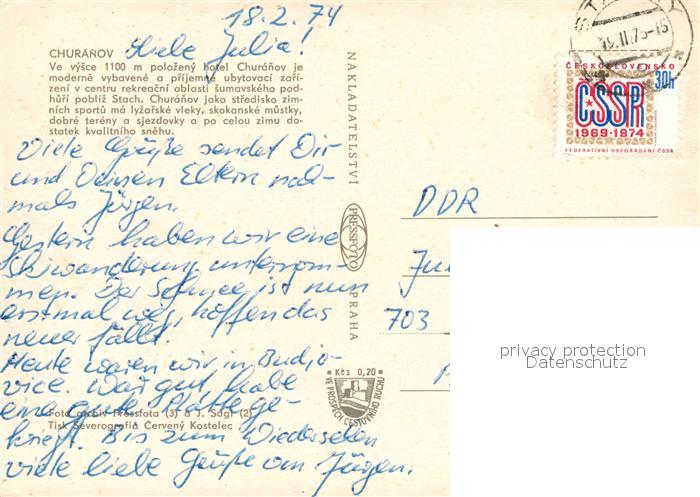 18.2.74
CHURÁŇOV
Liebe Julia!
Ve výšce 1100 m položený hotel Churáňov je
moderně vybavené a příjemné ubytovací zaří-
zení v centru rekreační oblasti šumavského pod-
hůří poblíž Stach. Churáňov jako středisko zim-
ních sportů má lyžařské vleky, skokanské můstky,
dobré terény a sjezdovky a po celou zimu do-
statek kvalitního sněhu.
Viele Grüße sendet Dir
und Deinen Eltern noch-
mals Jürgen.
Gestern haben wir eine
Skiwanderung unternom-
men. Der Schnee ist nun
erstmal weg, hoffen das
neuer fällt.
Heute waren wir in Budjo-
vice. War gut, habe
eine gute Platte ge-
kriegt. Bis zum Wiedersehen
viele liebe Grüße von Jürgen.
Foto archiv Pressfota (3) a J. Ságl (2)
Tisk Severografia Červený Kostelec
NAKLADATELSTVÍ
PRESSFOTO
PRAHA
Kčs 0,20
VE PROSPĚCH CESTOVNÍHO RUCHU
19.II.75-15
ČESKOSLOVENSKO
30h
ČSSR
1969-1974
FEDERATIVNÍ USPOŘÁDÁNÍ ČSSR
DDR
Ju
703
privacy protection
Datenschutz